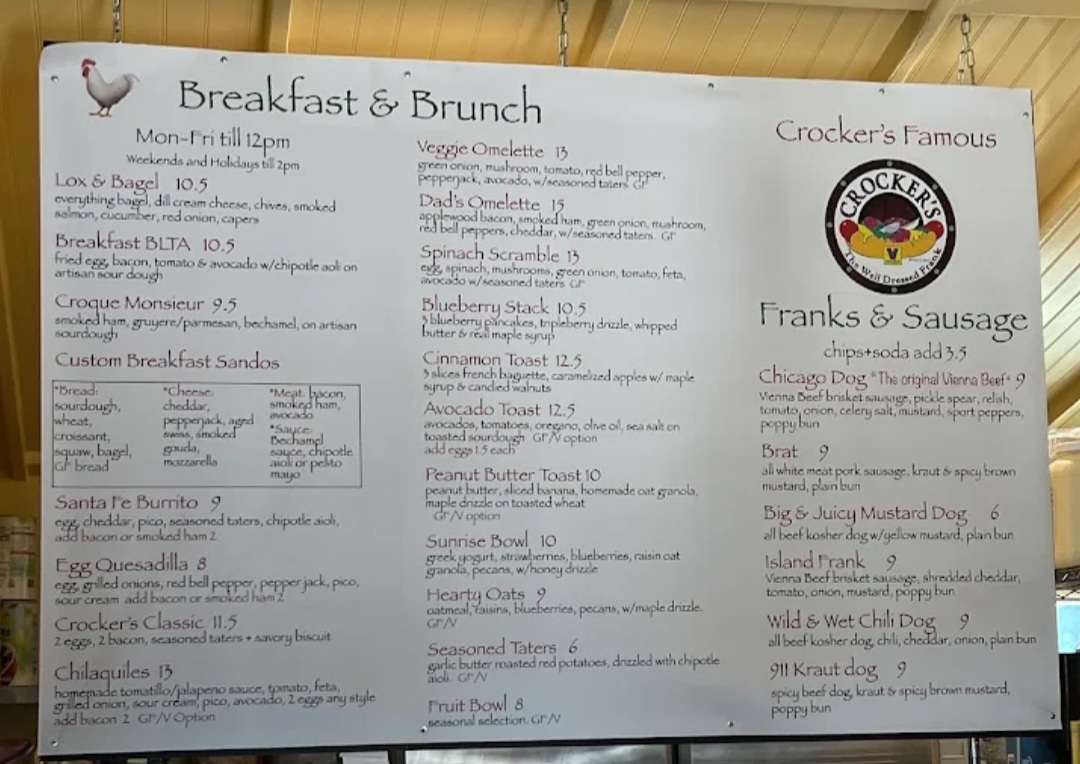 Breakfast & Brunch
Mon-Fri till 12pm
Weekends and Holidays till 2pm
Lox & Bagel 10.5
everything bagel, dill cream cheese, chives, smoked
salmon, cucumber, red onion, capers
Breakfast BLTA 10.5
fried egg, bacon, tomato & avocado w/chipotle aoli on
artisan sour dough
Croque Monsieur 9.5
smoked ham, gruyere/parmesan, bechamel, on artisan
sourdough
Custom Breakfast Sandos
*Bread:
sourdough,
wheat,
croissant,
squaw, bagel,
GF bread
*Cheese:
cheddar,
pepperjack, aged
swiss, smoked
gouda,
mozzarella
*Meat: bacon,
smoked ham,
avocado
*Sauce:
Bechamel
sauce, chipotle
aioli or pesto
mayo
Santa Fe Burrito 9
egg, cheddar, pico, seasoned taters, chipotle aioli,
add bacon or smoked ham 2
Egg Quesadilla 8
egg, grilled onions, red bell pepper, pepper jack, pico,
sour cream add bacon or smoked ham 2
Crocker's Classic 11.5
2 eggs, 2 bacon, seasoned taters + savory biscuit
Chilaquiles 13
homemade tomatillo/jalapeno sauce, tomato, feta,
grilled onion, sour cream, pico, avocado, 2 eggs any style
add bacon 2 GF/V Option
Veggie Omelette 13
green onion, mushroom, tomato, red bell pepper,
pepperjack, avocado, w/seasoned taters GF
Dad's Omelette 15
applewood bacon, smoked ham, green onion, mushroom,
red bell peppers, cheddar, w/seasoned taters. GF
Spinach Scramble 13
egg, spinach, mushrooms, green onion, tomato, feta,
avocado w/seasoned taters GF
Blueberry Stack 10.5
3 blueberry pancakes, tripleberry drizzle, whipped
butter & real maple syrup
Cinnamon Toast 12.5
3 slices french baguette, caramelized apples w/ maple
syrup & candied walnuts
Avocado Toast 12.5
avocados, tomatoes, oregano, olive oil, sea salt on
toasted sourdough GF/V option
add eggs 1.5 each
Peanut Butter Toast 10
peanut butter, sliced banana, homemade oat granola,
maple drizzle on toasted wheat
GF/V option
Sunrise Bowl 10
greek yogurt, strawberries, blueberries, raisin oat
granola, pecans, w/honey drizzle
Hearty Oats 9
oatmeal, raisins, blueberries, pecans, w/maple drizzle.
GF/V
Seasoned Taters 6
garlic butter roasted red potatoes, drizzled with chipotle
aioli. GF/V
Fruit Bowl 8
seasonal selection. GF/V
Crocker's Famous
CROCKER'S
The Well Dressed Frank
Franks & Sausage
chips+soda add 3.5
Chicago Dog "The original Vienna Beef" 9
Vienna Beef brisket sausage, pickle spear, relish,
tomato, onion, celery salt, mustard, sport peppers,
poppy bun
Brat 9
all white meat pork sausage, kraut & spicy brown
mustard, plain bun
Big & Juicy Mustard Dog 6
all beef kosher dog w/yellow mustard, plain bun
Island Frank 9
Vienna Beef brisket sausage, shredded cheddar,
tomato, onion, mustard, poppy bun
Wild & Wet Chili Dog 9
all beef kosher dog, chili, cheddar, onion, plain bun
911 Kraut dog 9
spicy beef dog, kraut & spicy brown mustard,
poppy bun